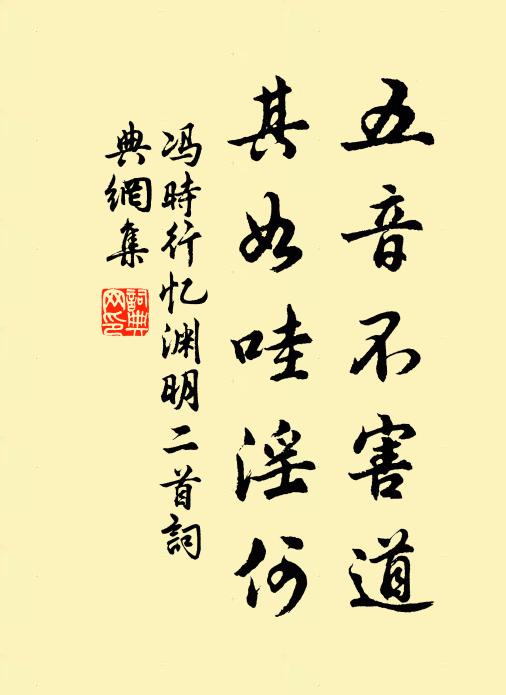 五音不害道
其如哇淫何
冯時行忆渊明二首詞
典網集
詞典网印